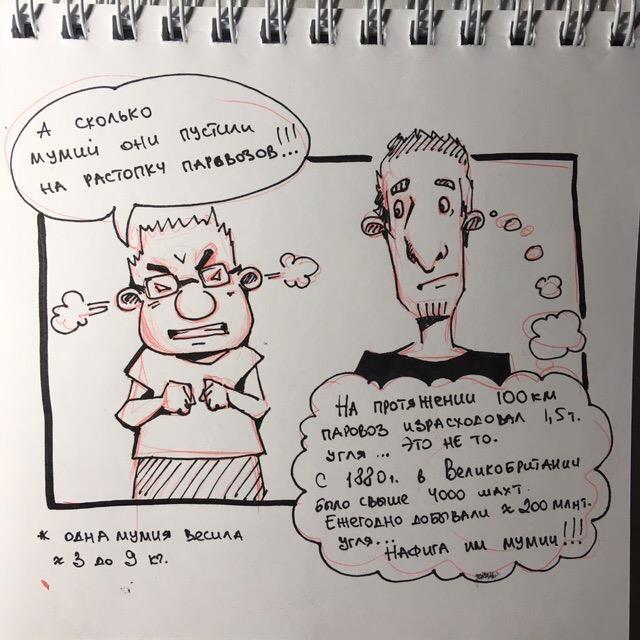 А СКОЛЬКО
МУМИЙ ОНИ ПУСТИЛИ
НА РАСТОПКУ ПАРОВОЗОВ...!!!
НА ПРОТЯЖЕНИИ 100 КМ
ПАРОВОЗ ИЗРАСХОДОВАЛ 1,5 Т.
УГЛЯ... ЭТО НЕ ТО.
С 1880 г. В ВЕЛИКОБРИТАНИИ
БЫЛО СВЫШЕ 4000 ШАХТ.
ЕЖЕГОДНО ДОБЫВАЛИ ≈ 200 МЛН Т.
УГЛЯ...
НАФИГА ИМ МУМИИ!!!
* ОДНА МУМИЯ ВЕСИЛА
≈ 3 ДО 9 КГ.